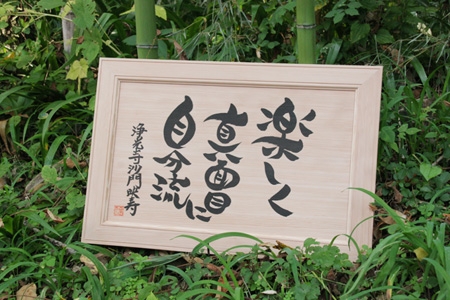 楽しく
真面目に
自分流
浄光寺沙門映寿